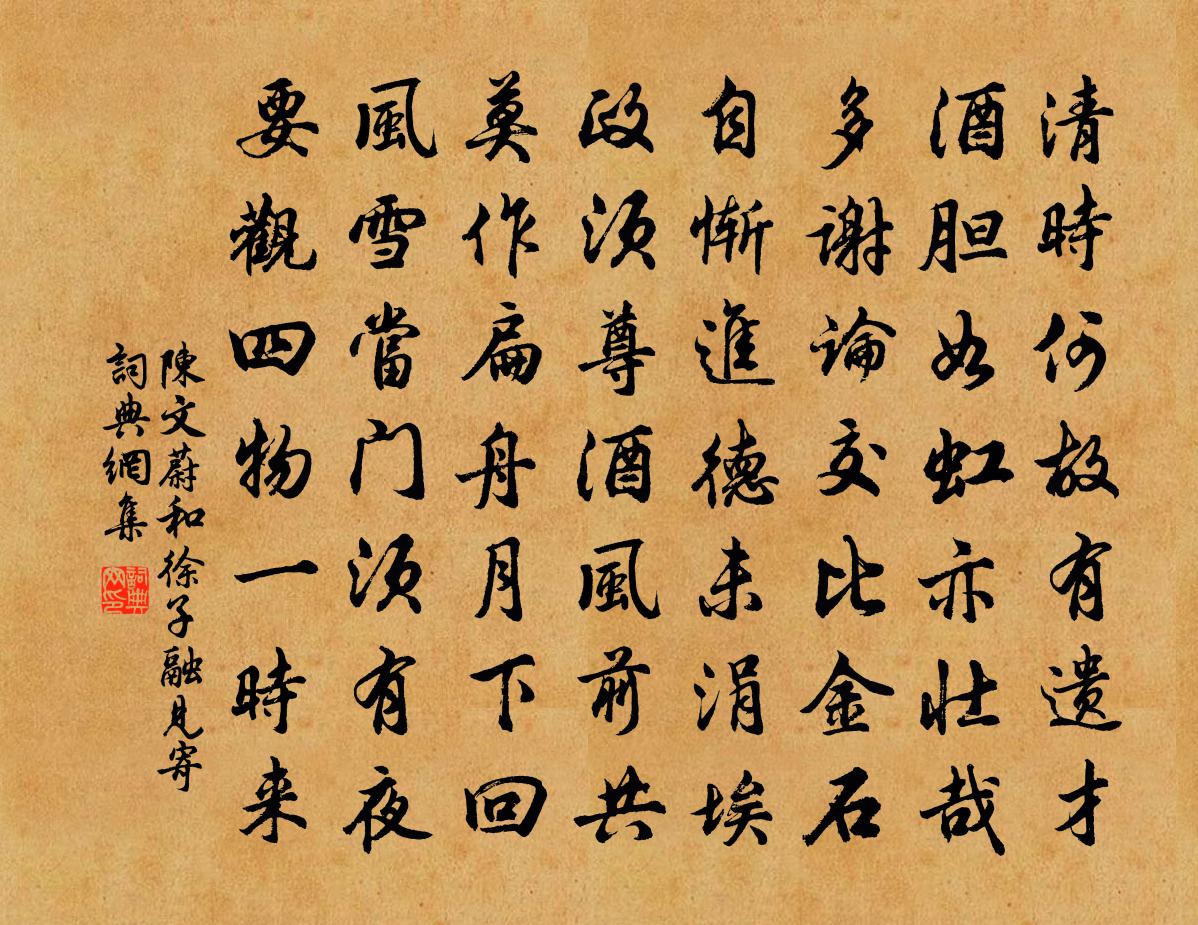 清時何故有遺才
酒胆如虹亦壮哉
多謝論交比金石
自慚進德未涓埃
政須尊酒風前共
莫作扁舟月下回
風雪當门須有夜
要觀四物一時来
陳文蔚和徐子融見寄
詞典網集
詞典网印